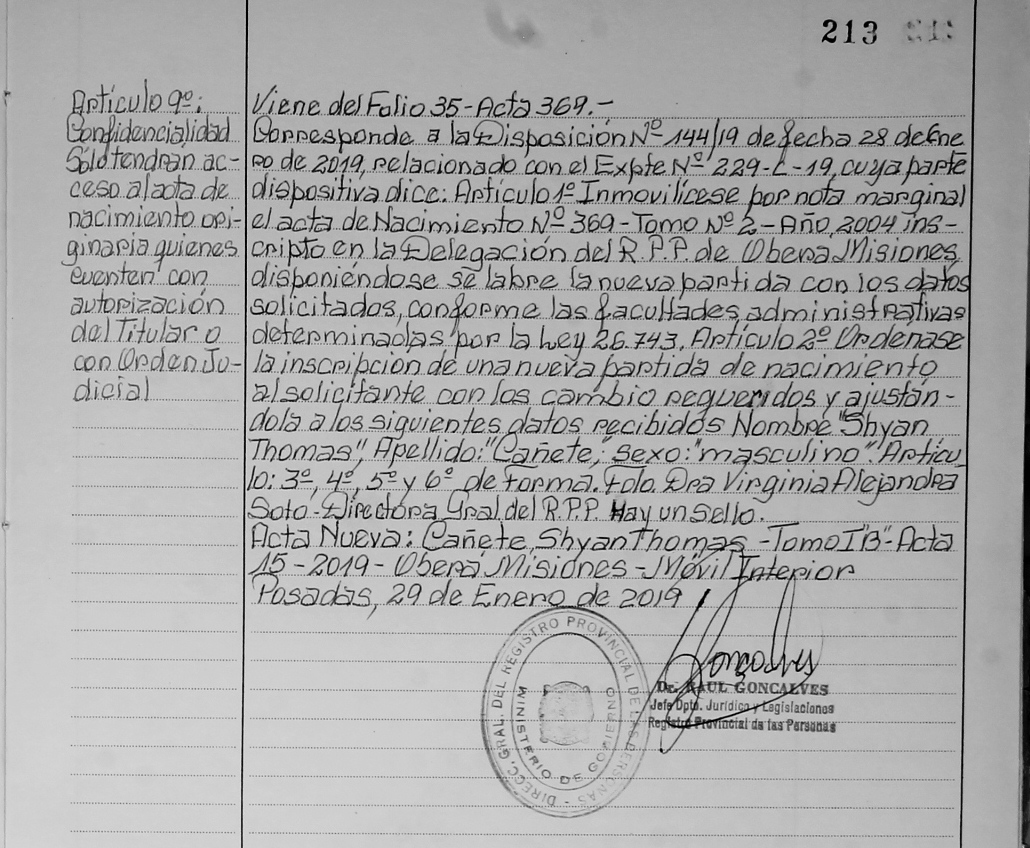 213
Artículo 9º:
Confidencialidad
Sólo tendrán ac-
ceso al acta de
nacimiento ori-
ginaria quienes
eventen con
autorización
del Titular o
con Orden Ju-
dicial
Viene del Folio 35-Acta 369.-
Corresponde a la Disposición Nº 144/19 de fecha 28 de Ene
ro de 2019, relacionado con el Expte Nº 229-L-19, cuya parte
dispositiva dice: Artículo 1º Inmovilícese por nota marginal
el acta de Nacimiento Nº 369-Tomo Nº 2-Año, 2004 ins-
cripto en la Delegación del R.P.P. de Oberá Misiones
disponiéndose se labre la nueva partida con los datos
solicitados, conforme las facultades administrativas
determinadas por la Ley 26.743, Artículo 2º Ordenase
la inscripción de una nueva partida de nacimiento
al solicitante con los cambio requeridos y ajustán-
dola a los siguientes datos recibidos Nombre "Shyan
Thomas", Apellido: "Cañete", sexo: "masculino". Artícu-
lo: 3º, 4º, 5º y 6º de Forma. Fdo. Dra Virginia Alejandra
Soto-Directora Gral. del R.P.P. Hay un Sello.
Acta Nueva: Cañete, Shyan Thomas -Tomo I"B"-Acta
15-2019-Oberá Misiones-Móvil Interior
Posadas, 29 de Enero de 2019
Goncalves
Dr. RAUL GONCALVES
Jefe Dpto. Jurídico y Legislaciones
Registro Provincial de las Personas
DIRECC. GRAL. DEL REGISTRO PROVINCIAL DE LAS PERSONAS
MINISTERIO DE GOBIERNO